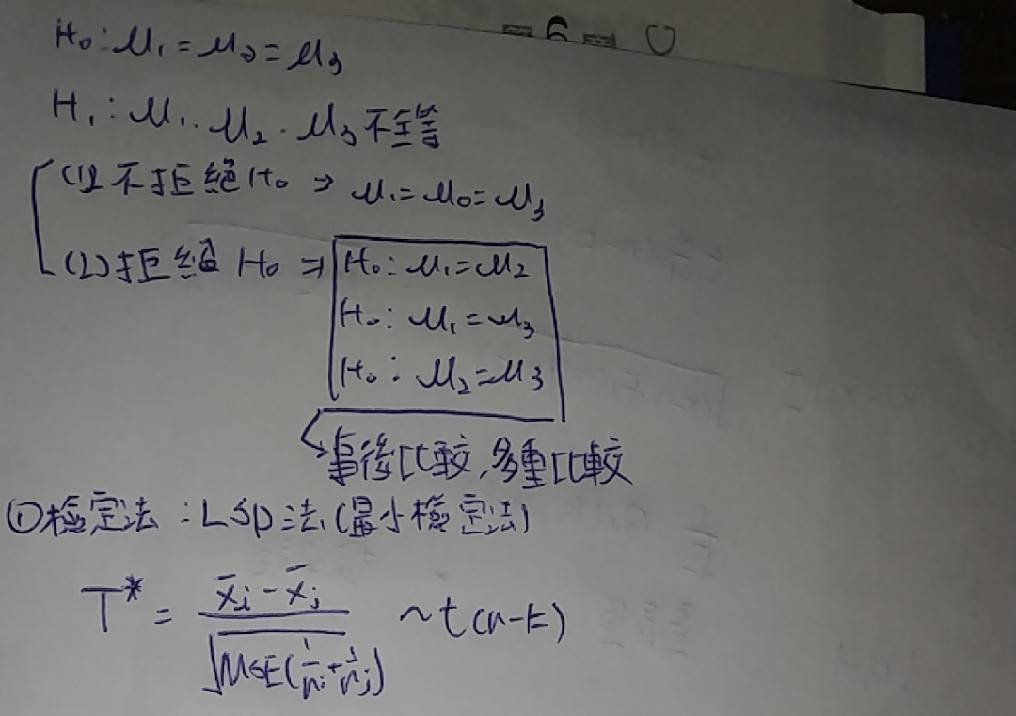 H₀: μ₁ = μ₂ = μ₃
H₁: μ₁. μ₂. μ₃ 不全等
(1) 不拒絕 H₀ ⇒ μ₁ = μ₀ = μ₃
(2) 拒絕 H₀ ⇒ H₀: μ₁ = μ₂
H₀: μ₁ = μ₃
H₀: μ₂ = μ₃
事後比較,多重比較
①檢定法:LSD法(最小檢定法)
T* = (x̄i - x̄j) / √(MSE(1/ni + 1/nj)) ~ t(n-k)